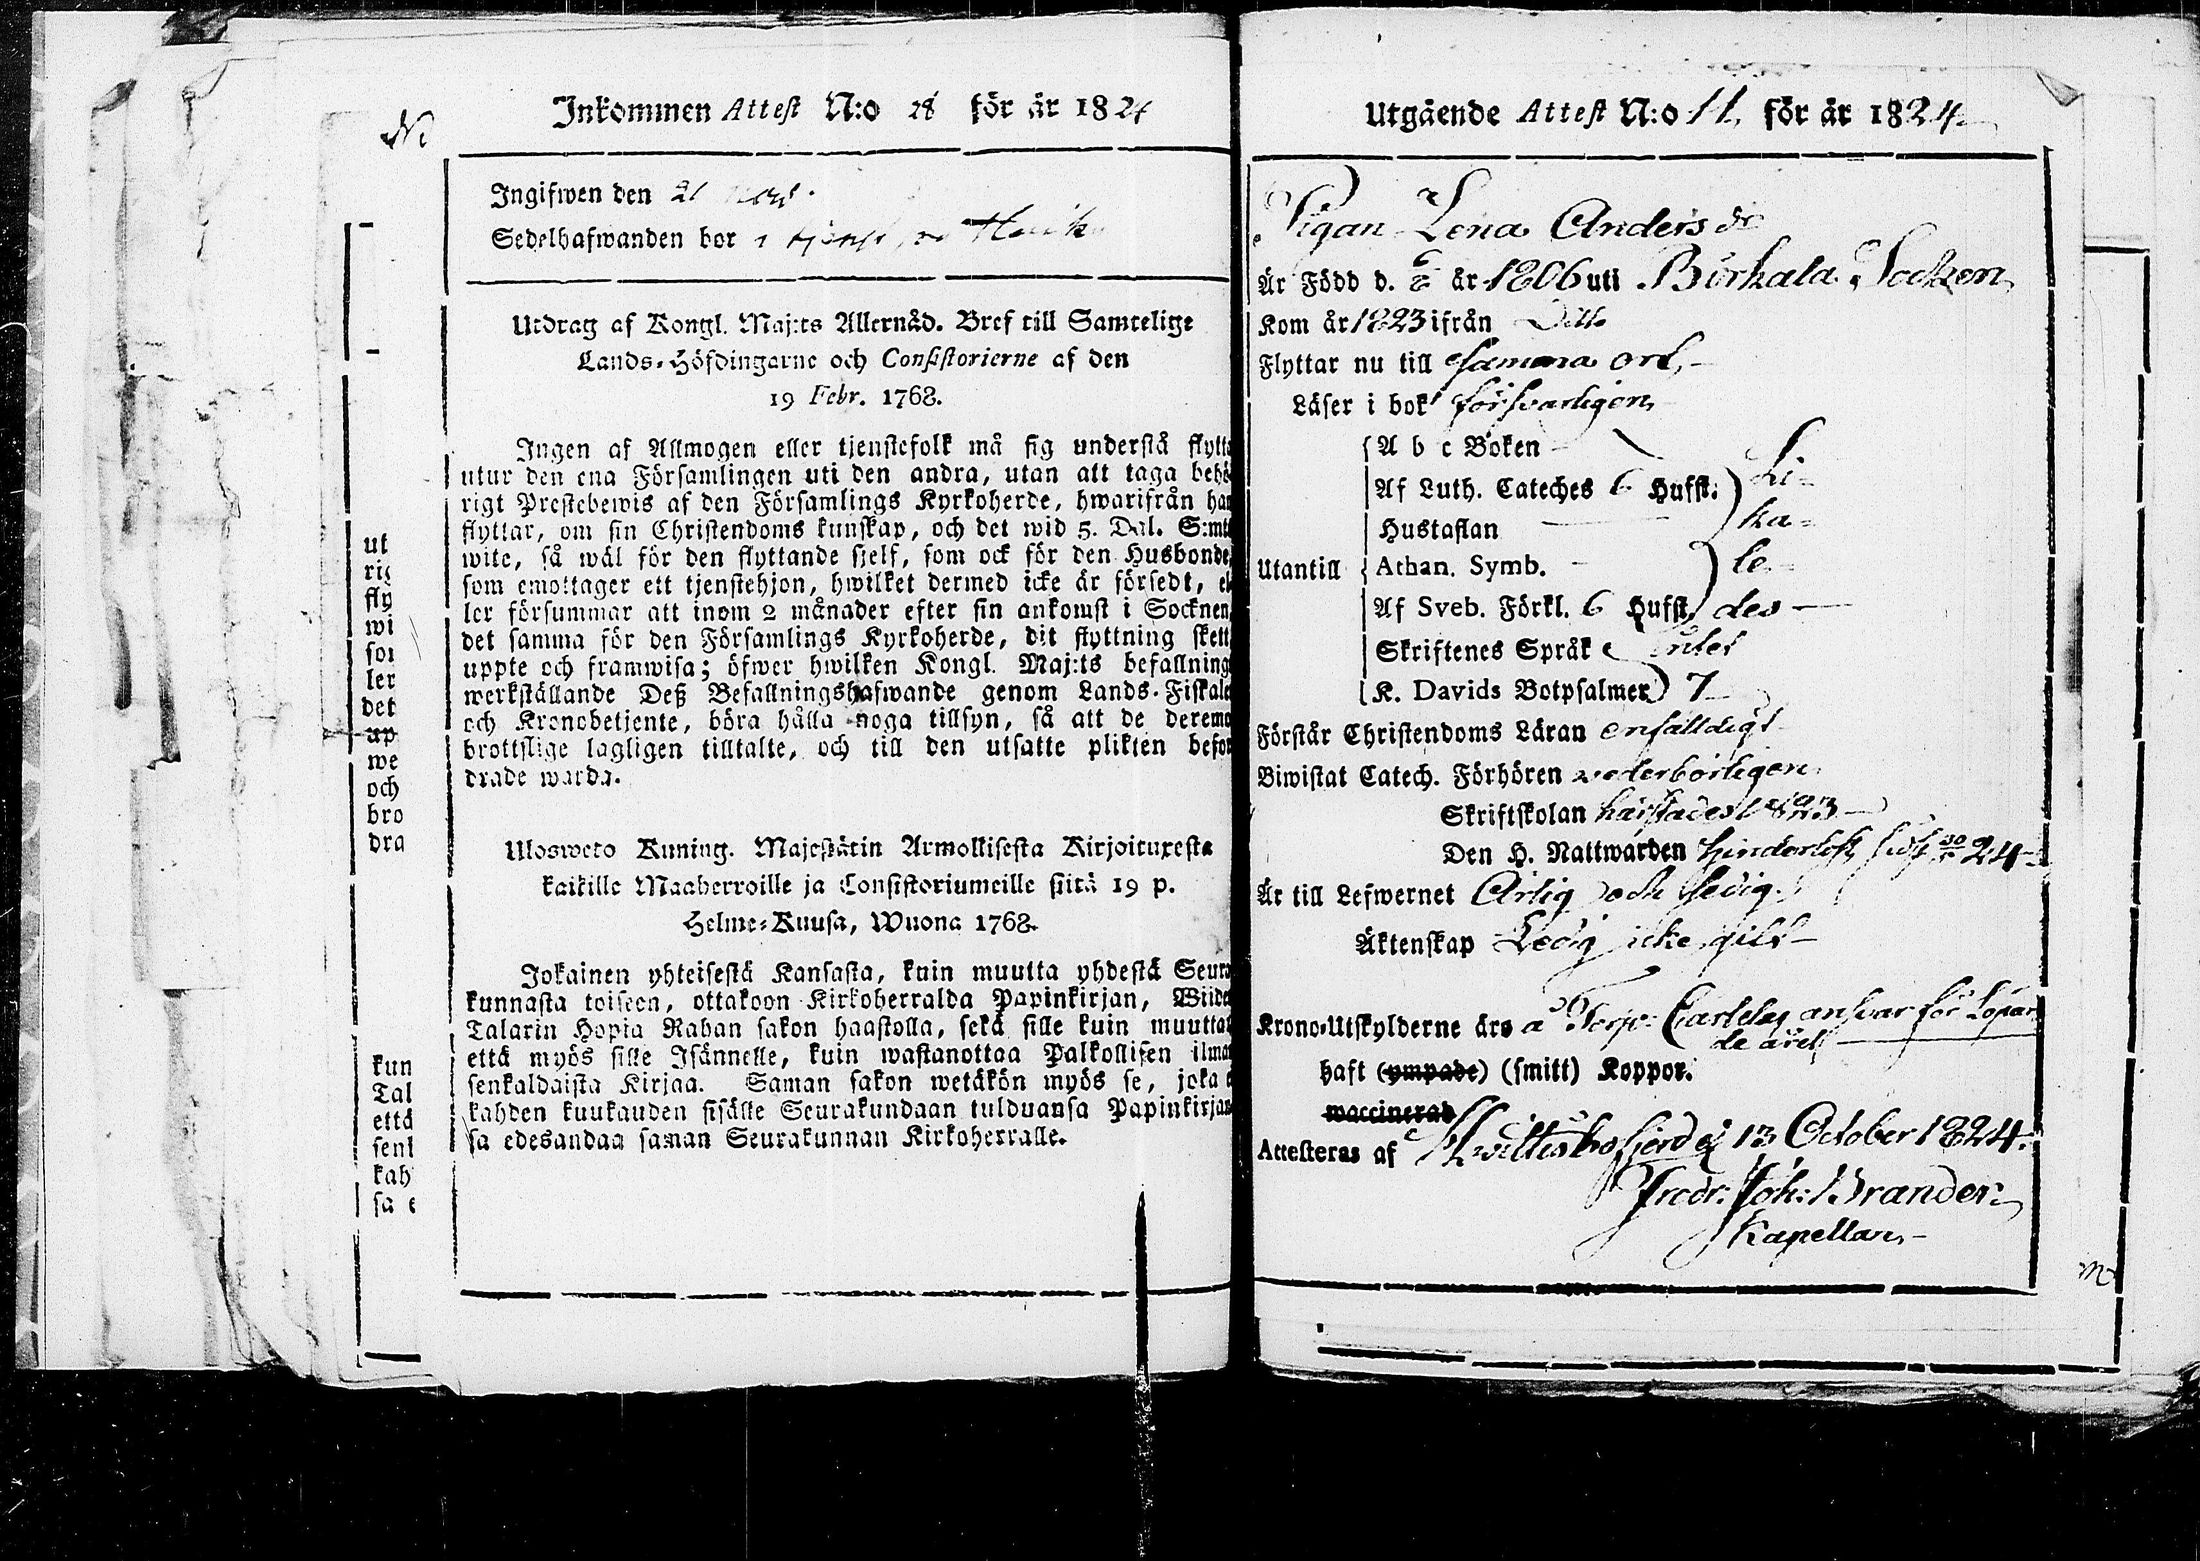 Inkommen Attest N:o 28 för år 1824
Ingifwen den 21 Nov.
Sedelhafwanden bor i tjenst
Utdrag af Kongl. Maj:ts Allernåd. Bref till Samtelige
Lands-Höfdingarne och Consistorierne af den
19 Febr. 1768.
Ingen af Allmogen eller tjenstefolk må sig understå flytta
utur den ena Församlingen uti den andra, utan att taga behö
rigt Prestebewis af den Församlings Kyrkoherde, hwarifrån han
flyttar, om sin Christendoms kunskap, och det wid 5. Dal. S:mts
wite, så wäl för den flyttande sjelf, som ock för den Husbonde,
som emottager ett tjenstehjon, hwilket dermed icke är försedt, el
ler försummar att inom 2 månader efter sin ankomst i Socknen,
det samma för den Församlings Kyrkoherde, dit flyttning skett
uppte och framwisa; öfwer hwilken Kongl. Maj:ts befallning
werkställande Deß Befallningshafwande genom Lands-Fiskale
och Kronobetjente, böra hålla noga tillsyn, så att de deremo
brottslige lagligen tilltalte, och till den utsatte plikten befor
drade warda.
Ulosweto Kuning. Majestätin Armollisesta Kirjoituxesta
kaikille Maaherroille ja Consistoriumeille siitä 19 p.
Helme-Kuusa, Wuona 1768.
Jokainen yhteisestä Kansasta, kuin muutta yhdestä Seura
kunnasta toiseen, ottakoon Kirkoherralda Papinkirjan, Wiiden
Talarin Hopia Rahan sakon haastolla, sekä sille kuin muuttaa
että myös sille Isännelle, kuin wastanottaa Palkollisen ilman
senkaldaista Kirjaa. Saman sakon wetäkön myös se, joka ei
kahden kuukauden sisälle Seurakundaan tulduansa Papinkirjaan
sa edesandaa saman Seurakunnan Kirkoherralle.
Utgående Attest N:o 11. för år 1824.
Pigan Lena Andersdr
Är Född d. 6/2 år 1806 uti Birkala Socken
Kom år 1823 ifrån Ditto
Flyttar nu till samma ort,
Läser i bok försvarligen
A b c Boken
Af Luth. Cateches 6 Hufst. Li-
Hustaflan ka-
Utantill Athan. Symb. le-
Af Sveb. Förkl. 6 Hufst. des
Skriftenes Språk
K. Davids Botpsalmer 7
Förstår Christendoms Läran enfalldigt
Biwistat Catech. Förhören wederbörligen
Skriftskolan härstädes 1823
Den H. Nattwarden hinderlöst sidst 24
Är till Lefwernet Ärlig och sedig.
Äktenskap Ledig icke gift
Krono-Utskylderne äro å Torp: ansvar för löpan
de året
haft (ympade) (smitt) Koppor.
waccinerad
Attesteras af Kwiltiskosfjerd d. 13 October 1824.
Fredr: Joh: Brander
Kapellan